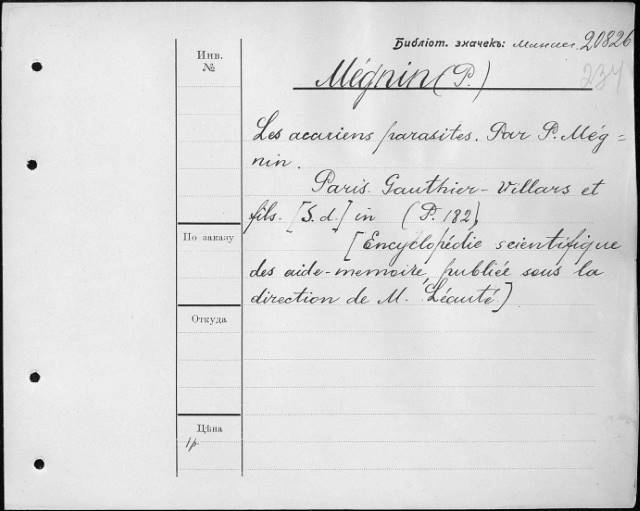 Библіот. значекъ: 20826
234
Инв.
№
Mégnin (P.)
Les acariens parasites. Par P. Még=
nin.
Paris. Gauthier-Villars et
fils. [S.d.] in (P. 182)
[Encyclopédie scientifique
des aide-memoire, publiée sous la
direction de M. Léauté]
По заказу
Откуда
Цѣна
1р